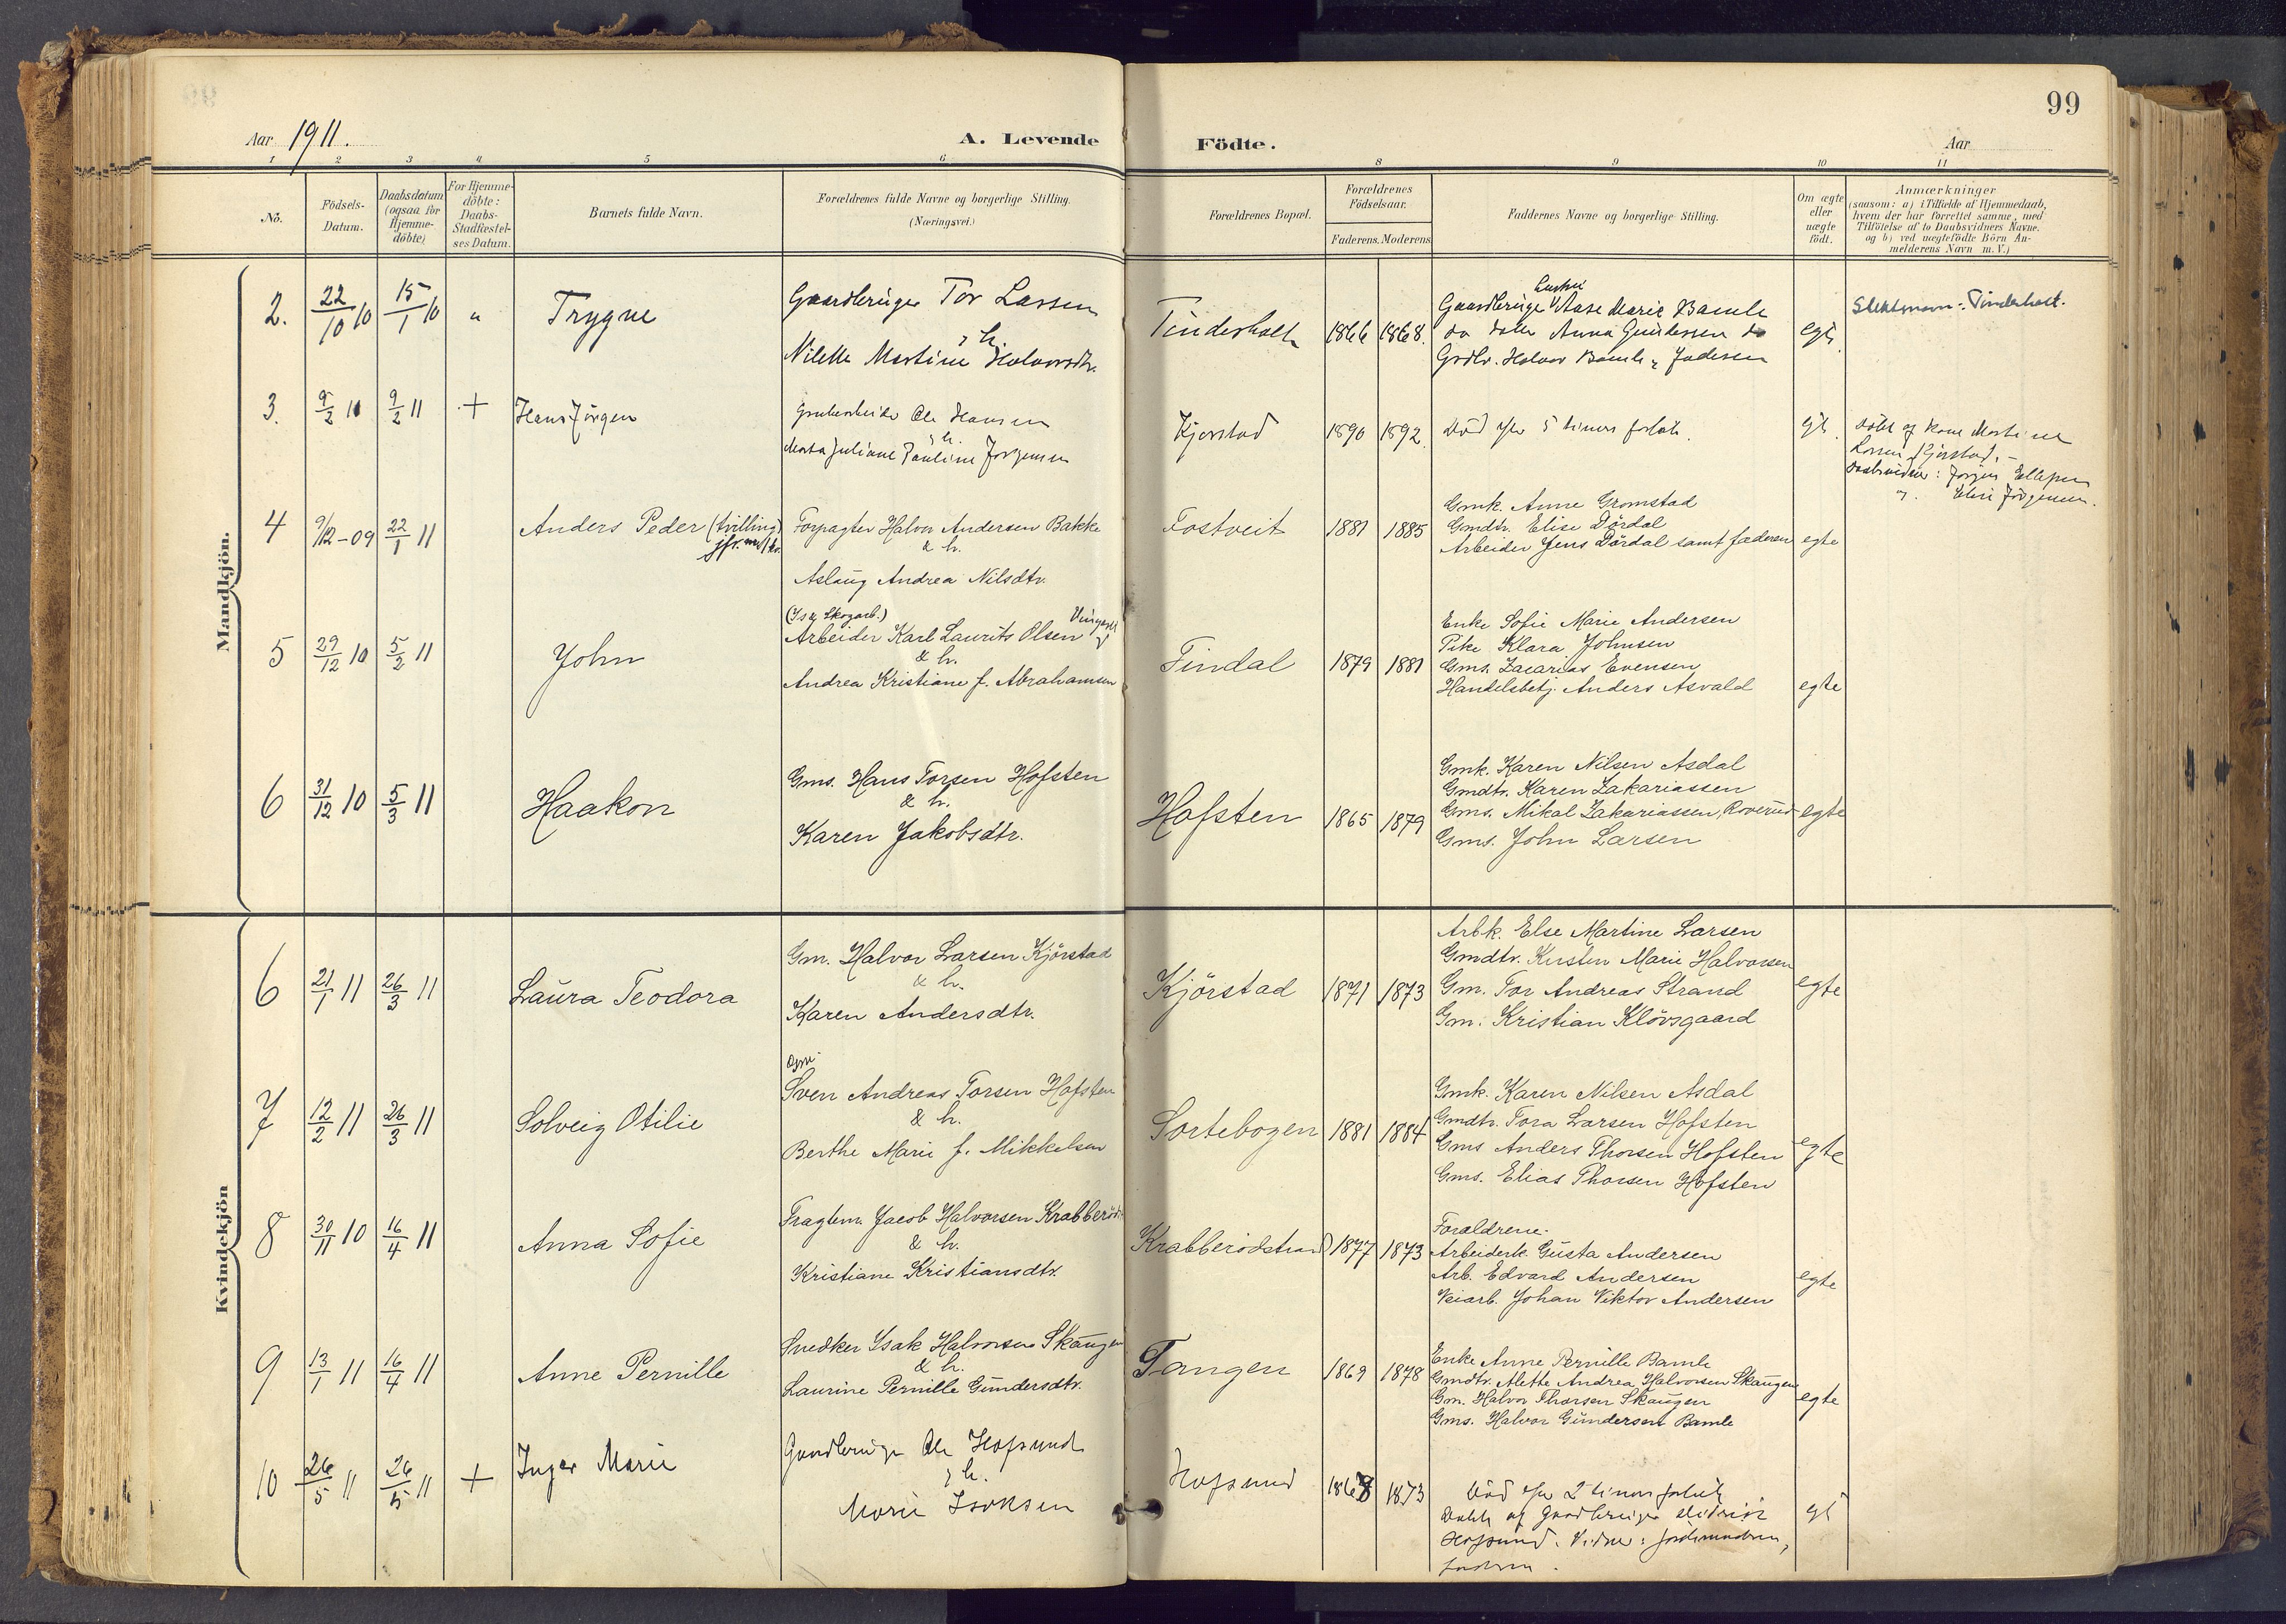 99
Aar 1911.
A. Levende Födte.
Aar
1 2 3 4 5 6 8 9 10 11
No.
Födsels-
Datum.
Daabsdatum
(ogsaa for
Hjemme-
döbte)
For Hjemme-
döbte:
Daabs-
Stadfæstel-
ses Datum.
Barnets fulde Navn.
Forældrenes fulde Navne og borgerlige Stilling.
(Næringsvei.)
Forældrenes Bopæl.
Forældrenes
Födselsaar.
Faderens. Moderens
Faddernes Navne og borgerlige Stilling.
Om ægte
eller
uægte
födt.
Anmærkninger
(saasom: a) i Tilfælde af Hjemmedaab,
hvem der har forrettet samme, med
Tilföielse af to Daabsvidners Navne.
og b) ved uægtefödte Börn An-
melderens Navn m. V.)
Mandkjön.
2. 22/10 10 15/1 10 " Trygve
Gaardbruger Tor Lassen
& h.
Nilette Martine Halvorsdtr.
Tinderholt 1866 1868.
Gaardbruge Aase Marie Bamle
do datter Anna Gundersen do
Grdbr. Halvor Bamle & Faderen
egt.
Slektsnavn: Tinderholt.
3. 9/2 11 9/2 11 + Hans Jörgen
Ole Hansen
& h.
Marta Juliane Pauline Jörgensen
Kjørstad 1890 1892.
Död efter 5 timers forløb.
egt.
Döbt af Kone Martine
Larsen Kjørstad. -
Daabsvidner: Jørgen Ellefsen
og Elise Jörgensen.
4 9/12-09 22/1 11 Anders Peder (tvilling)
jfr.
Forpagter Halvor Andersen Bakke
& h.
Aslaug Andrea Nilsdtr.
Tostveit 1881 1885
Gmk. Anne Gromstad
Gmdtr. Elise Dördal
Arbeider Jens Dördal samt faderen
egte
5 29/12 10 5/2 11 John
(Is & Skogarb.)
Arbeider Karl Laurits Olsen
& h.
Andrea Kristiane f. Abrahamsen
Findal 1879 1881
Enke Sofie Marie Andersen
Pike Klara Johnsen
Gms. Zacarias Evensen
Handelsbetj. Anders Asvald
egte
6 31/12 10 5/3 11 Haakon
Gms. Hans Torsen Hofsten
& h.
Karen Jakobsdtr.
Hofsten 1865 1879
Gmk. Karen Nilsen Asdal
Gmdtr. Karen Zakariassen
Gms. Mikal Zakariassen, Roverud
Gms. John Larsen
egte
Kvindekjön
6 21/1 11 26/3 11 Laura Teodora
Gm. Halvor Larsen Kjörstad
& h.
Karen Andersdtr.
Kjörstad 1871 1873
Arbk. Else Martine Larsen
Gmdtr. Kirsten Marie Halvorsen
Gm. Tor Andreas Strand
Gm. Kristian Klövsgaard
egte
7 12/2 11 26/3 11 Solveig Otilie
Sven Andreas Torsen Hofsten
& h.
Berthe Marie f. Mikkelsen
Sortebogen 1881 1884
Gmk. Karen Nilsen Asdal
Gmdtr. Tora Larsen Hofsten
Gms Anders Thorsen Hofsten
Gms. Elias Thorsen Hofsten
egte
8 30/11 10 16/4 11 Anna Sofie
Fragtem. Jacob Halvorsen Krabberöd
& h.
Kristiane Kristiansdtr.
Krabberödstrand 1877 1873
Forældrene.
Arbeiderk. Gusta Andersen
Arb. Edvard Andersen
Veiarb. Johan Viktor Andersen
egte
9 13/1 11 16/4 11 Anne Pernille
Snedker Isak Halvorsen Skaugen
& h.
Laurine Pernille Gundersdtr.
Tangen 1869 1878
Enke Anne Pernille Bamle
Gmdtr. Alette Andrea Halvorsen Skaugen
Gm. Halvor Thorsen Skaugen
Gms. Halvor Gundersen Bamle
egte
10 26/5 11 26/5 11 + Inger Marie
Gaardbruger Ole Hafsund
& h.
Marie Isaksen
Hafsund 1868 1873
Död efter 2 timers forløb
Döbt af Gaardbruger
Hafsund. Vidner: Jordemoderen,
faderen.
egt